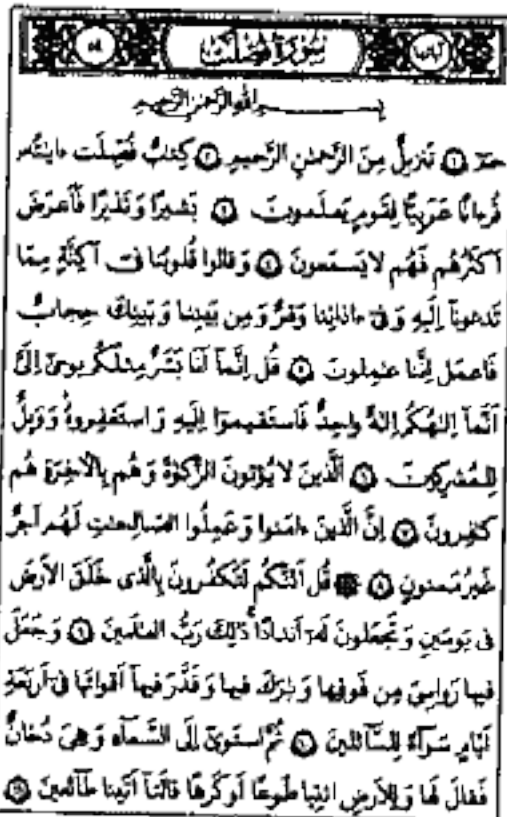 آياتها سورة فصلت ٥٤
بِسْمِ اللَّهِ الرَّحْمَٰنِ الرَّحِيمِ
حمٓ ١ تَنزِيلٌ مِنَ الرَّحْمَٰنِ الرَّحِيمِ ٢ كِتَابٌ فُصِّلَت ءَايَٰتُهُۥ
قُرءَانًا عَرَبِيًّا لِقَومٍ يَعلَمونَ ٣ بَشيرًا وَنَذيرًا فَأَعرَضَ
أَكثَرُهُم فَهُم لا يَسمَعونَ ٤ وَقالوا قُلوبُنا فى أَكِنَّةٍ مِمّا
تَدعونآ إِلَيهِ وَفى ءاذانِنا وَقرٌ وَمِن بَينِنا وَبَينِكَ حِجابٌ
فَاعمَل إِنَّنا عٰمِلونَ ٥ قُل إِنَّمآ أَنا۠ بَشَرٌ مِثلُكُم يوحىٰ إِلَىَّ
أَنَّمآ إِلٰهُكُم إِلٰهٌ وٰحِدٌ فَاستَقيموٓا إِلَيهِ وَاستَغفِروهُ وَوَيلٌ
لِلمُشرِكينَ ٦ الَّذينَ لا يُؤتونَ الزَّكوٰةَ وَهُم بِالأَخِرَةِ هُم
كٰفِرونَ ٧ إِنَّ الَّذينَ ءامَنوا وَعَمِلُوا الصّالِحٰتِ لَهُم أَجرٌ
غَيرُ مَمنونٍ ٨ قُل أَئِنَّكُم لَتَكفُرونَ بِالَّذى خَلَقَ الأَرضَ
فى يَومَينِ وَتَجعَلونَ لَهُۥ أَندادًا ذٰلِكَ رَبُّ العالَمينَ ٩ وَجَعَلَ
فيها رَوٰسِىَ مِن فَوقِها وَبٰرَكَ فيها وَقَدَّرَ فيهآ أَقوٰتَها فى أَربَعَةِ
أَيّامٍ سَوآءً لِلسّآئِلينَ ١٠ ثُمَّ استَوىٰ إِلَى السَّمآءِ وَهِىَ دُخانٌ
فَقالَ لَها وَلِلأَرضِ ائتِيا طَوعًا أَو كَرهًا قالَتآ أَتَينا طآئِعينَ ١١